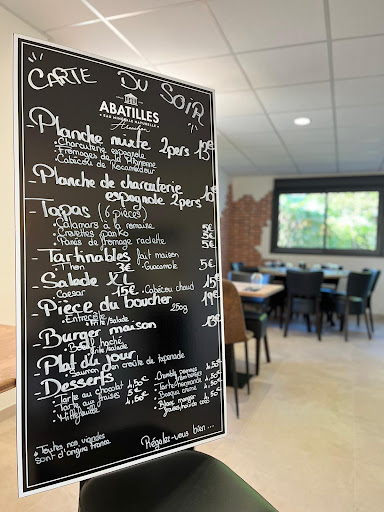 CARTE DU SOIR
ABATILLES
EAU MINÉRALE NATURELLE
Arcachon
- Planche mixte 2pers 15€
• Charcuterie espagnole
• Fromages de la
• Cabécou de Rocamadour
- Planche de charcuterie
espagnole 2pers 10€
- Tapas (6 pièces)
• Calamars à la romaine 5€
• Crevettes panko 5€
• Panés de fromage raclette 5€
- Tartinables fait maison
• Thon 3€ • Guacamole 5€
- Salade XL
• Caesar 15€ • Cabécou chaud 15€
- Pièce du boucher 250g 19€
• Entrecôte
Frite/Salade
- Burger maison 13€
• Boeuf haché
Frite/Salade
- Plat du jour
• Saumon en croûte de tapenade
- Desserts
• Tarte au chocolat 4,50€
• Tarte aux fraises 5€
• Millefeuille
• Crumble pomme
framboises 4,50€
• Tarte normande 4,50€
• Basque chérie 4,50€
• Blanc manger
fraises/noix de coco
* Toutes nos viandes
sont d'origine france
Régalez-vous bien ...